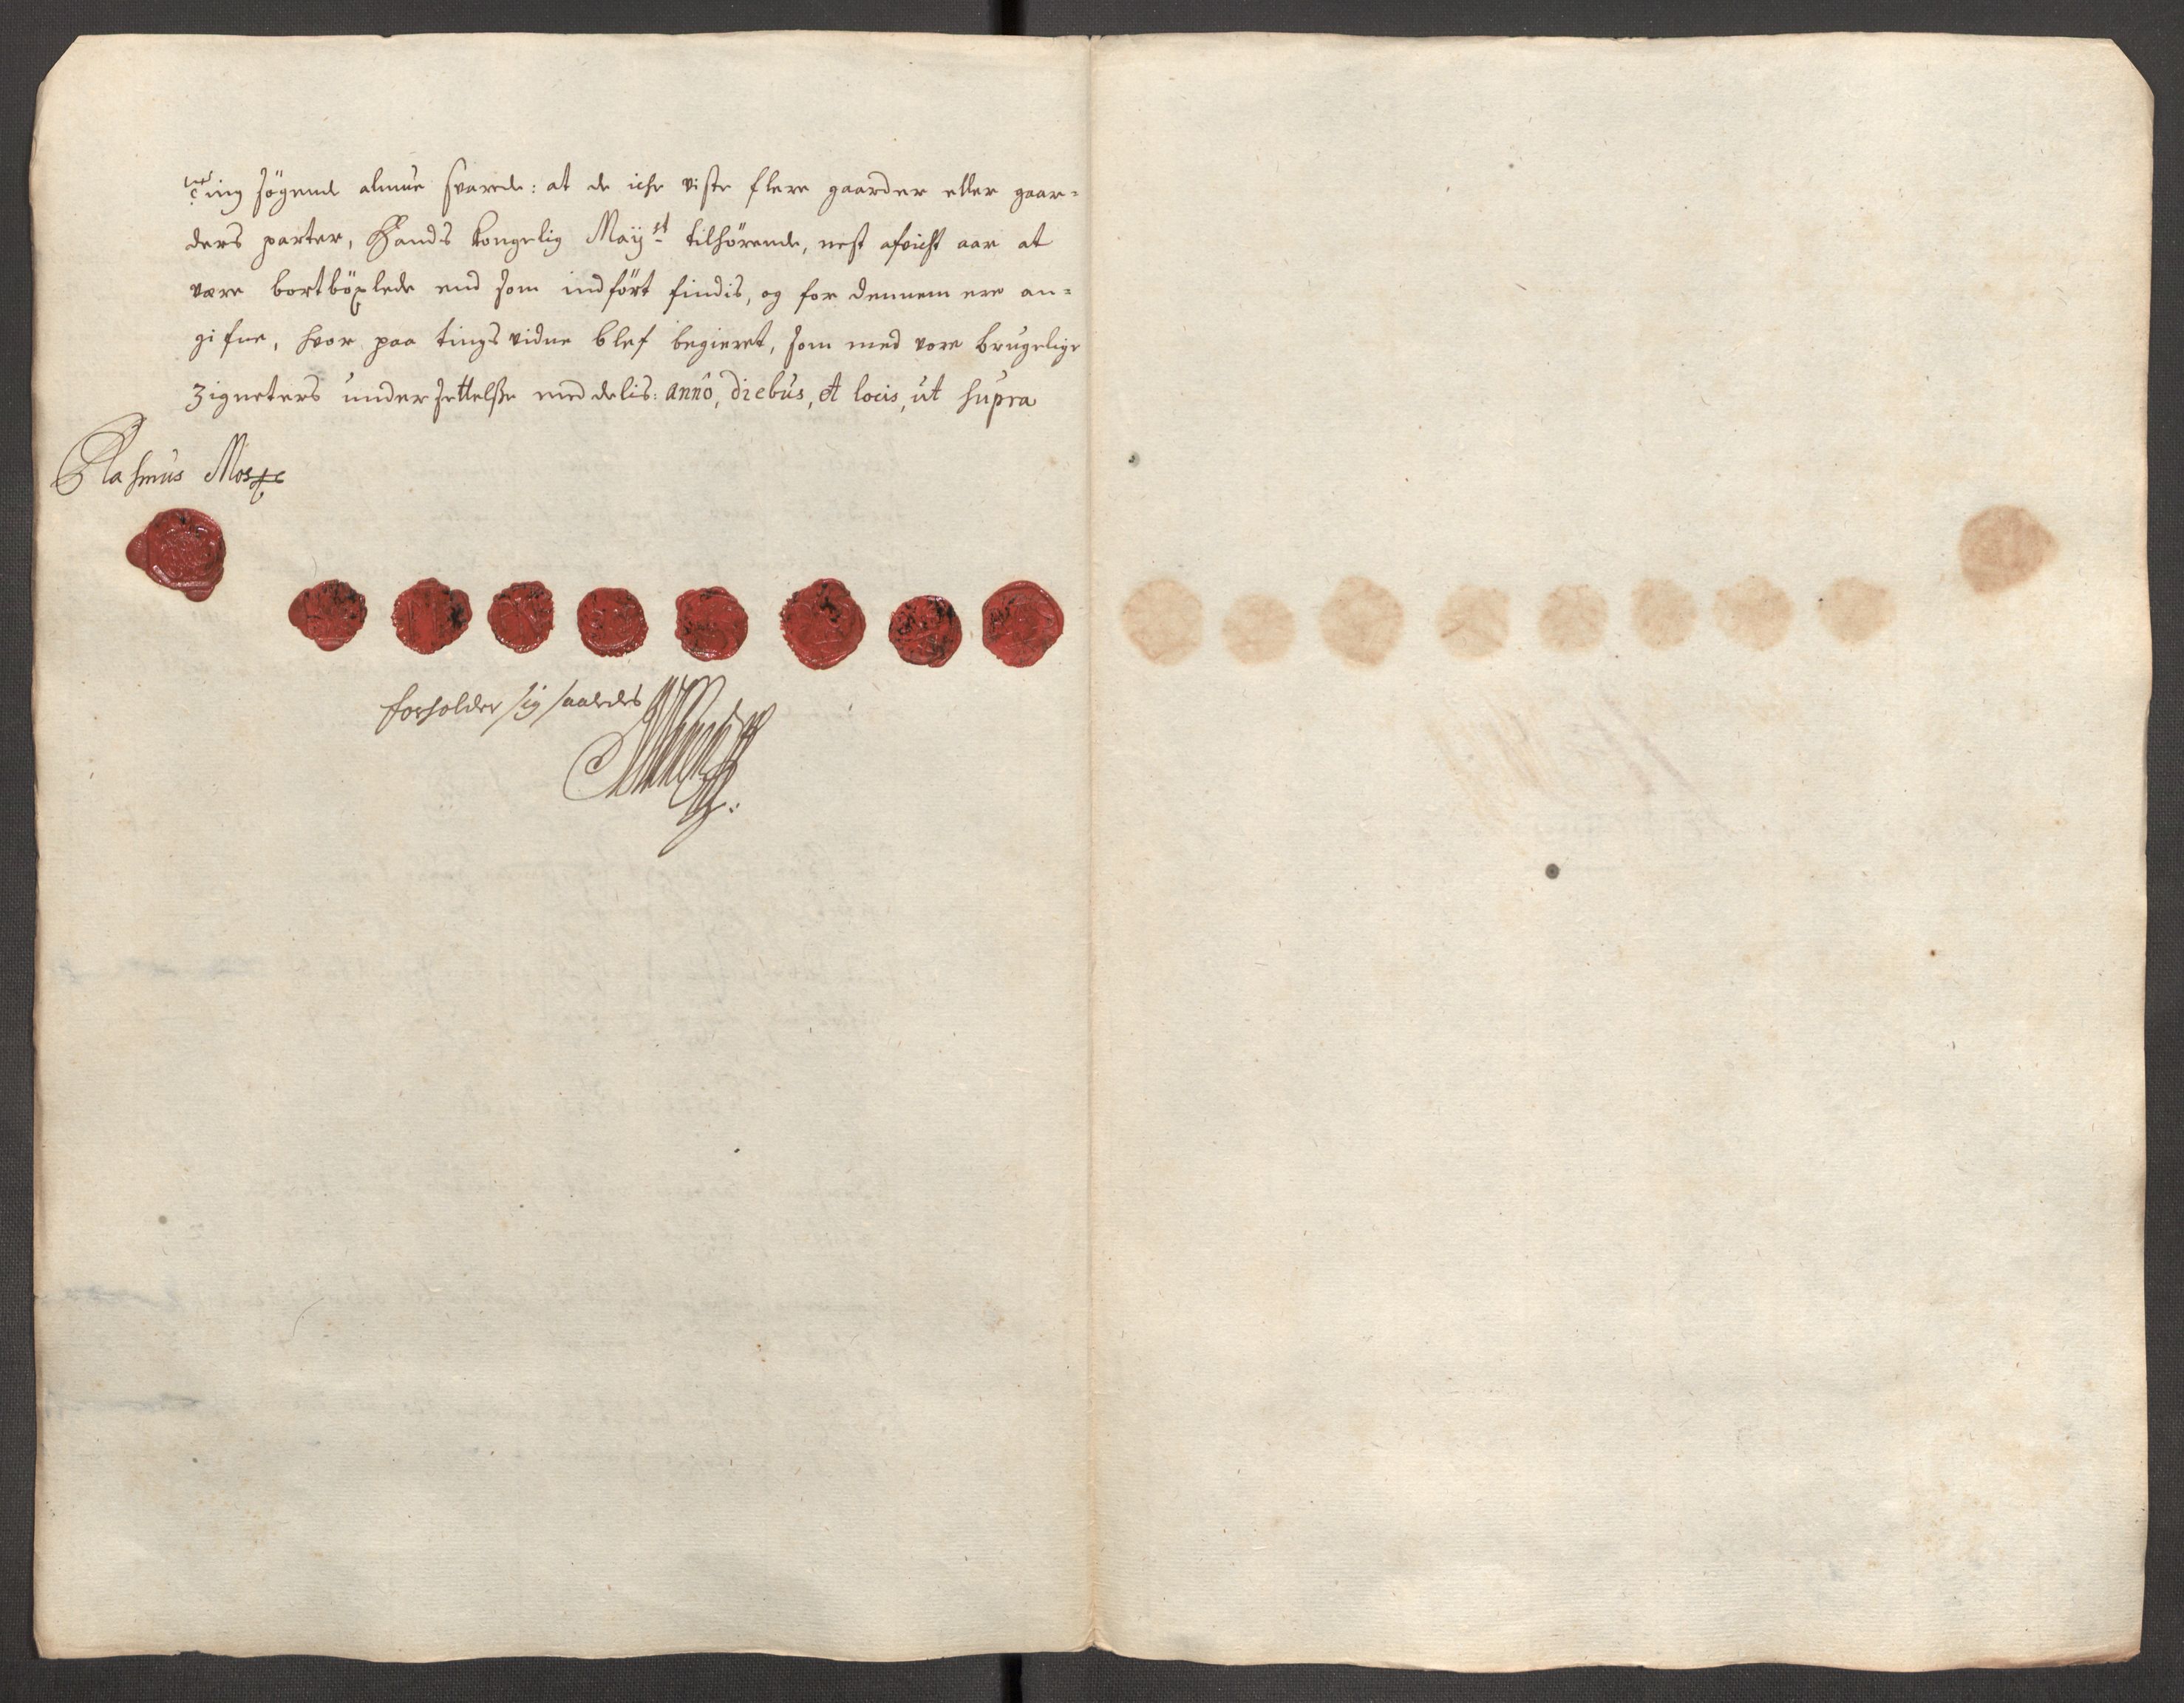 ting søgende almue svarede: at de iche viste flere gaarder eller gaar=
ders parter, Hands kongelig Maÿst tilhörende, nest afvicht aar at
være bortböxlede end som indført findis, og for dennem ere an=
gifne, hvor paa tings vidne blef begieret, som med vore brugelige
Zigneters underzettelsse med delis: anno, diebus, et locis, ut supra
Rasmus
forholder sig saaledes